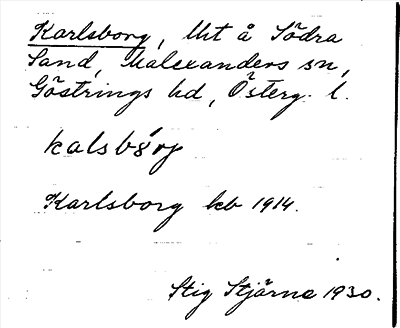 Karlsborg, lht å Södra
Sand, Malexanders sn,
Göstrings hd, Österg. l.
kalsbǒrj
Karlsborg kb 1914.
Stig Stjärna 1930.